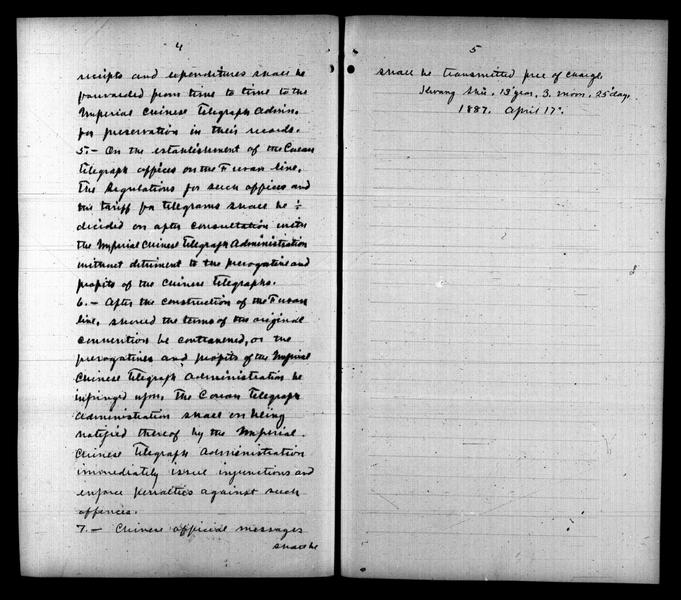 4
receipts and expenditures shall be
forwarded from time to time to the
Imperial Chinese Telegraph Admin.
for preservation in their records.
5.— On the establishment of the Corean
Telegraph offices on the Fusan line,
the regulations for such offices and
the tariff for telegrams shall be
decided on after consultation with
the Imperial Chinese Telegraph Administration
without detriment to the prerogative and
profits of the Chinese Telegraphs.
6.— After the construction of the Fusan
line, should the terms of the original
convention be contravened, or the
prerogatives and profits of the Imperial
Chinese Telegraph Administration be
infringed upon, the Corean Telegraph
Administration shall on being
notified thereof by the Imperial
Chinese Telegraph Administration
immediately issue injunctions and
enforce penalties against such
offences.
7.— Chinese official messages
shall be
5
shall be transmitted free of charge
Kwang Shü. 13 year, 3. moon, 25 day.
1887. April 17".